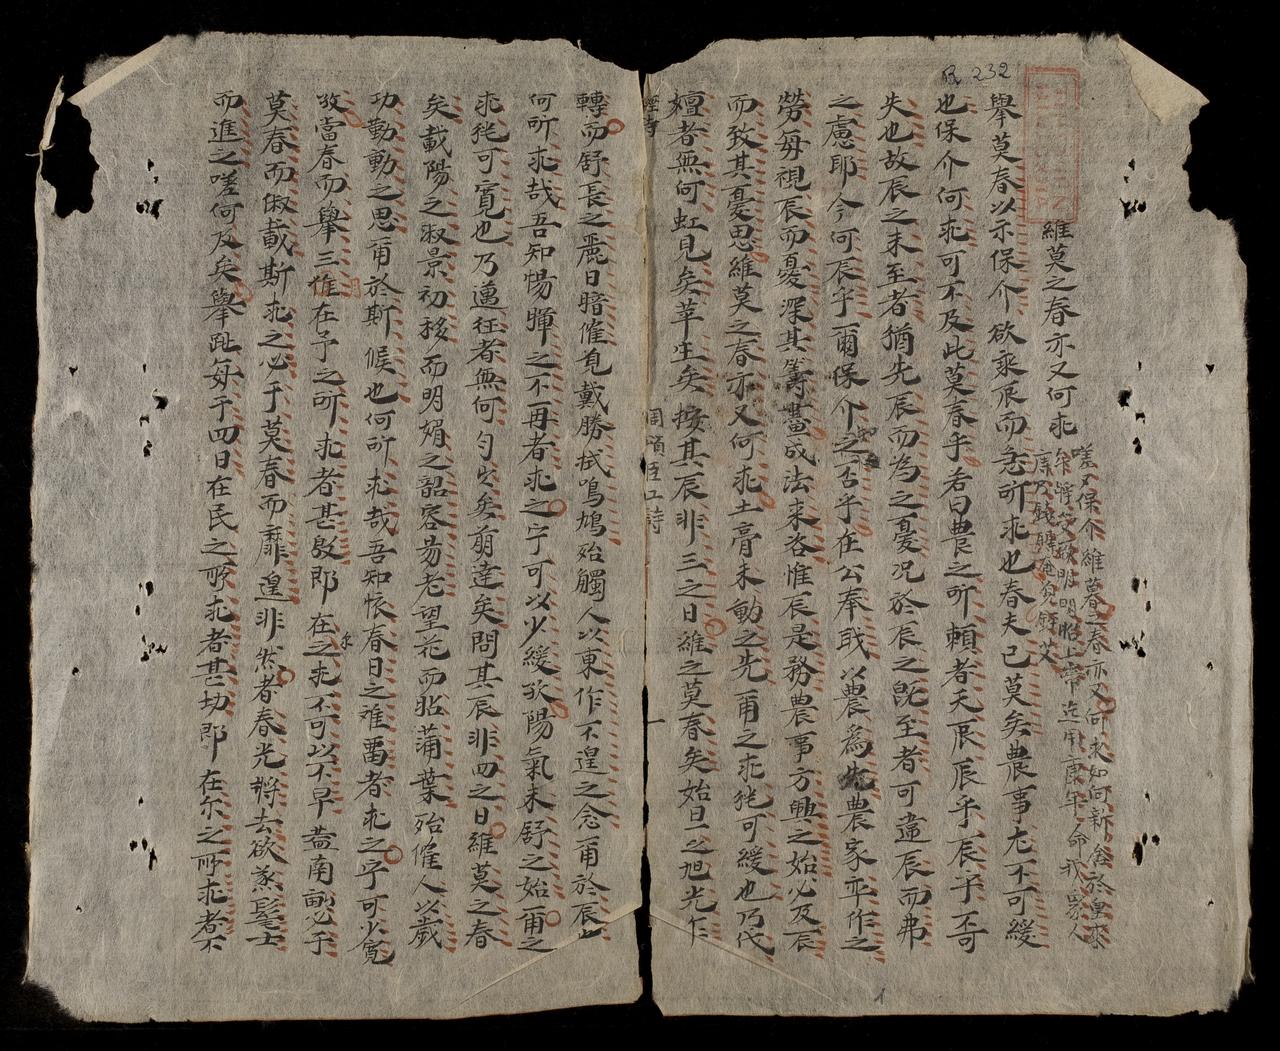 維莫之春亦又何求
嗟嗟保介維暮之春亦又何求如何新畬於皇來
牟將受厥明明昭上帝迄用康年命我眾人
庤乃錢鎛奄觀銍艾
舉莫春以示保介欲乘辰而急所求也春夫已莫矣農事尤不可緩
也保介何求可不及此莫春乎若曰農之所賴者天辰辰乎辰乎丕可
失也故辰之未至者猶先辰而為之憂況於辰之既至者可違辰而弗
之慮耶今何辰乎爾保介之否乎在公奉職以農為先農家平作之
勞每視辰而憂深其籌畫成法來洛惟辰是務農事方興之始必及辰
而致其憂思維莫之春亦又何求土膏未動之先爾之求猶可緩也乃代
嬗者無何虹見矣苹生矣按其辰非三之日維之莫春矣始旦之旭光乍
經寺
周頌臣工詩
一
轉而舒長之麗日暗催覓戴勝拭鳴鳩殆觸人以東作不遑之念爾於辰也
何所求哉吾知惕暉之不再者求之寧可以少緩歟陽氣未舒之始爾之
求猶可寬也乃邁征者無何勾出矣萌達矣問其辰非四之日維莫之春
矣載陽之淑景初移而明媚之韶容易老望花而貼蒲葉殆催人以歲
功勤動之思爾於斯候也何所求哉吾知悵春日之难畱者求之寧可少寬
故當春而舉三惟在予之所求者甚殷即在尔之求不可以不早蓋南畝必于
莫春而俶載斯求之必于莫春而靡遑非然者春光將去欲烝髦士
而進之嗟何及矣舉趾每于四日在民之所求者甚切即在尔之所求者不